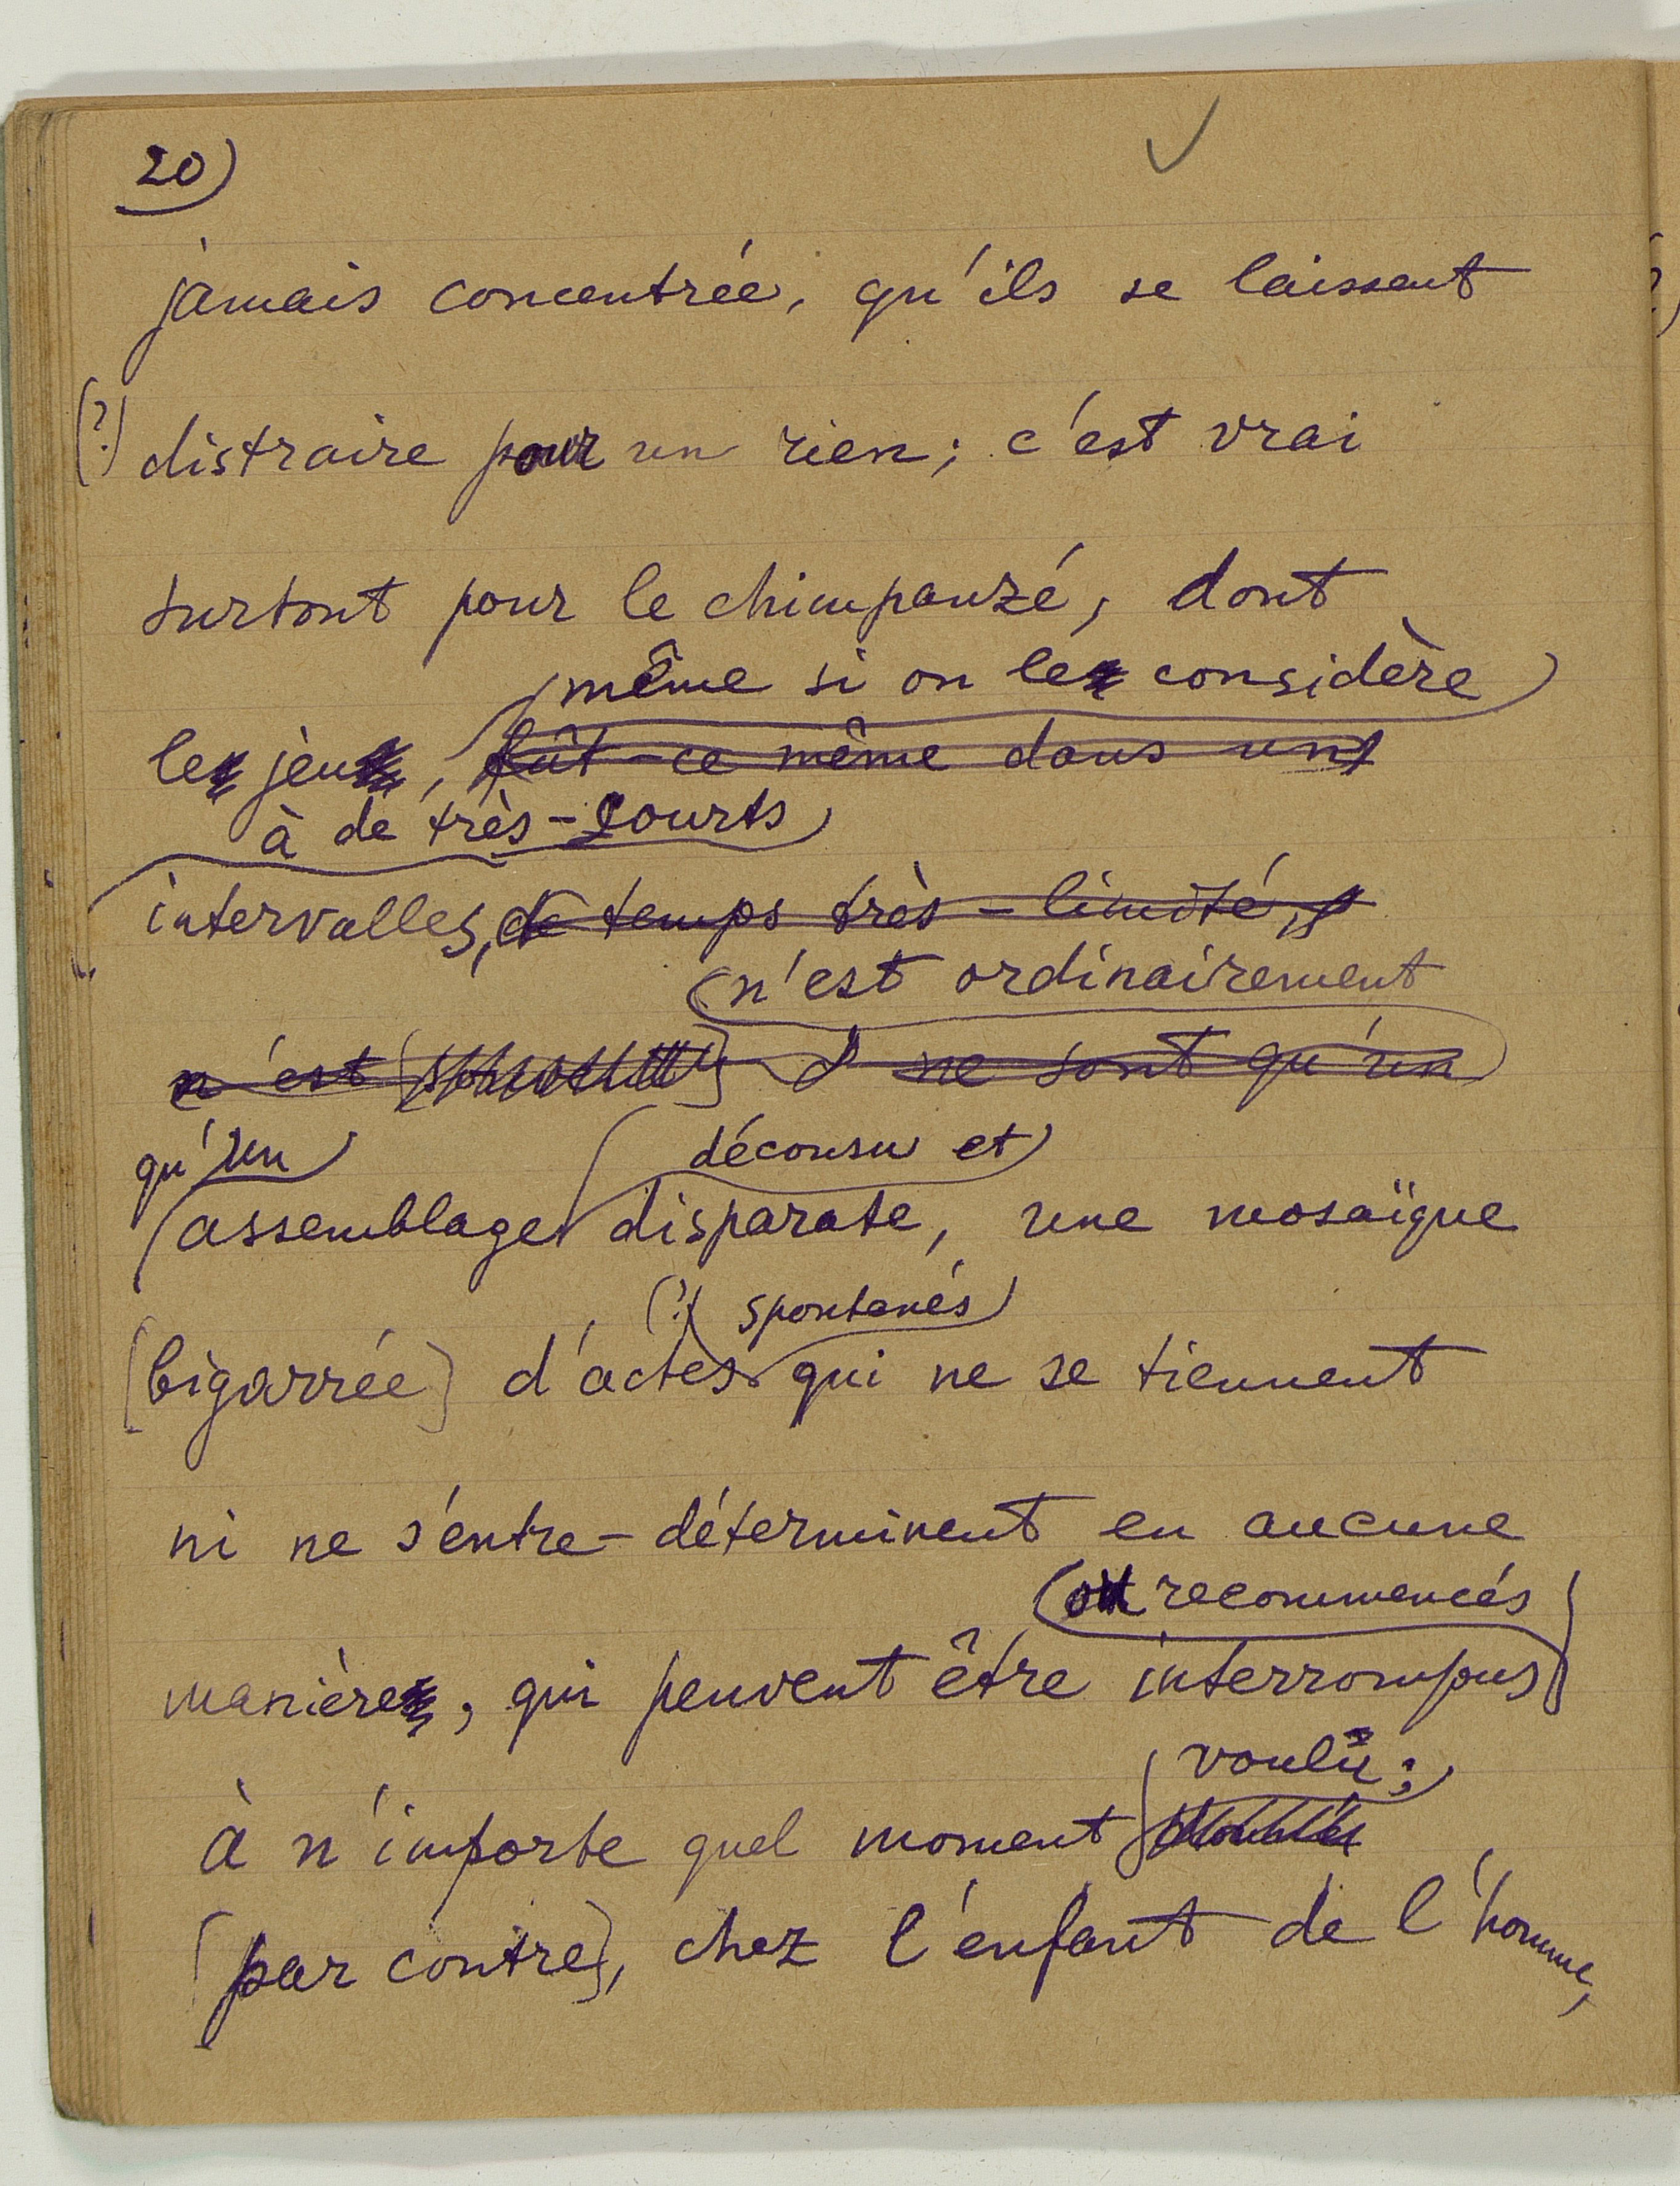 20)
jamais concentrée, qu'ils se laissent
(?) distraire pour un rien; c'est vrai
surtout pour le chimpanzé, dont
même si on le considère
le jeu, fût-ce même dans un
à de très-courts
intervalles, de temps très-limité,
n'est ordinairement
n'est ne sont qu'un
qu'un décousu et
assemblage disparate, une mosaïque
(?) spontanés
[bigarrée] d'actes qui ne se tiennent
ni ne s'entre-déterminent en aucune
ou recommencés
manière, qui peuvent être interrompus
voulu;
à n'importe quel moment
[par contre], chez l'enfant de l'homme,